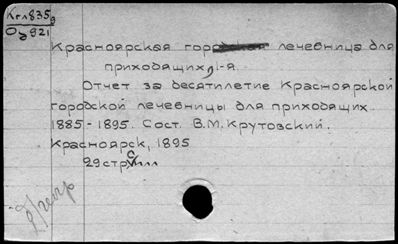 Кгл835
Оз921
Красноярская городская лечебница для
приходящих, 1-я.
Отчет за десятилетие Красноярской
городской лечебницы для приходящих.
1885-1895. Сост. В.М. Крутовский.
Красноярск, 1895
29 стр.